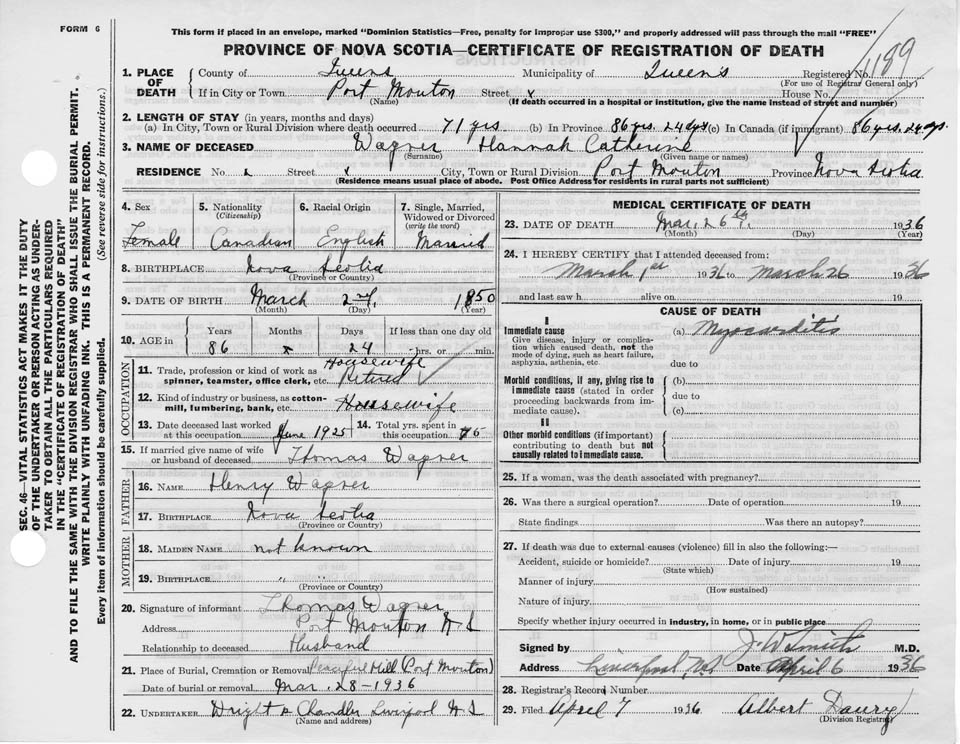 FORM 6
This form if placed in an envelope, marked "Dominion Statistics—Free, penalty for improper use $300," and properly addressed will pass through the mail "FREE"
PROVINCE OF NOVA SCOTIA—CERTIFICATE OF REGISTRATION OF DEATH
SEC. 46—VITAL STATISTICS ACT MAKES IT THE DUTY
OF THE UNDERTAKER OR PERSON ACTING AS UNDER-
TAKER TO OBTAIN ALL THE PARTICULARS REQUIRED
IN THE "CERTIFICATE OF REGISTRATION OF DEATH"
AND TO FILE THE SAME WITH THE DIVISION REGISTRAR WHO SHALL ISSUE THE BURIAL PERMIT.
WRITE PLAINLY WITH UNFADING INK. THIS IS A PERMANENT RECORD.
Every item of information should be carefully supplied. (See reverse side for instructions.)
1. PLACE OF DEATH County of Queens Municipality of Queen's Registered No. 1189
(For use of Registrar General only)
If in City or Town Port Mouton Street x House No.
(Name) (If death occurred in a hospital or institution, give the name instead of street and number)
2. LENGTH OF STAY (in years, months and days)
(a) In City, Town or Rural Division where death occurred 71 yrs. (b) In Province 86 yrs. 24 dys (c) In Canada (if immigrant) 86 yrs. 24 dys.
3. NAME OF DECEASED Wagner Hannah Catherine
(Surname) (Given name or names)
RESIDENCE No. Street x City, Town or Rural Division Port Mouton Province Nova Scotia
(Residence means usual place of abode. Post Office Address for residents in rural parts not sufficient)
4. Sex 5. Nationality (Citizenship) 6. Racial Origin 7. Single, Married, Widowed or Divorced (write the word)
Female Canadian English Married
8. BIRTHPLACE Nova Scotia
(Province or Country)
9. DATE OF BIRTH March 2nd, 1850
(Month) (Day) (Year)
10. AGE in Years Months Days If less than one day old
86 x 24 hrs. or min.
OCCUPATION
11. Trade, profession or kind of work as spinner, teamster, office clerk, etc. Housewife Retired
12. Kind of industry or business, as cotton-mill, lumbering, bank, etc. Housewife
13. Date deceased last worked at this occupation June 1925 14. Total yrs. spent in this occupation
15. If married give name of wife or husband of deceased Thomas Wagner
FATHER
16. NAME Henry Wagner
17. BIRTHPLACE Nova Scotia
(Province or Country)
MOTHER
18. MAIDEN NAME not known
19. BIRTHPLACE " "
(Province or Country)
20. Signature of informant Thomas Wagner
Address Port Mouton N S
Relationship to deceased Husband
21. Place of Burial, Cremation or Removal Peaceful Hill (Port Mouton)
Date of burial or removal Mar. 28 - 1936
22. UNDERTAKER Wright & Chandler Liverpool N S
(Name and address)
MEDICAL CERTIFICATE OF DEATH
23. DATE OF DEATH Mar, 26th, 1936
(Month) (Day) (Year)
24. I HEREBY CERTIFY that I attended deceased from:
March 1st 1936 to March 26 1936
and last saw h alive on 19
CAUSE OF DEATH
I
Immediate cause (a) Myocarditis
Give disease, injury or complica-
tion which caused death, not the
mode of dying, such as heart failure,
asphyxia, asthenia, etc. due to
Morbid conditions, if any, giving rise to (b)
immediate cause (stated in order due to
proceeding backwards from im-
mediate cause). (c)
II
Other morbid conditions (if important)
contributing to death but not
causally related to immediate cause.
25. If a woman, was the death associated with pregnancy?
26. Was there a surgical operation? Date of operation 19
State findings Was there an autopsy?
27. If death was due to external causes (violence) fill in also the following:—
Accident, suicide or homicide? Date of injury 19
(State which)
Manner of injury
(How sustained)
Nature of injury
Specify whether injury occurred in industry, in home, or in public place
Signed by J. W Smith M.D.
Address Liverpool N.S. Date April 6 1936
28. Registrar's Record Number
29. Filed April 7 1936 Albert Daury
(Division Registrar)